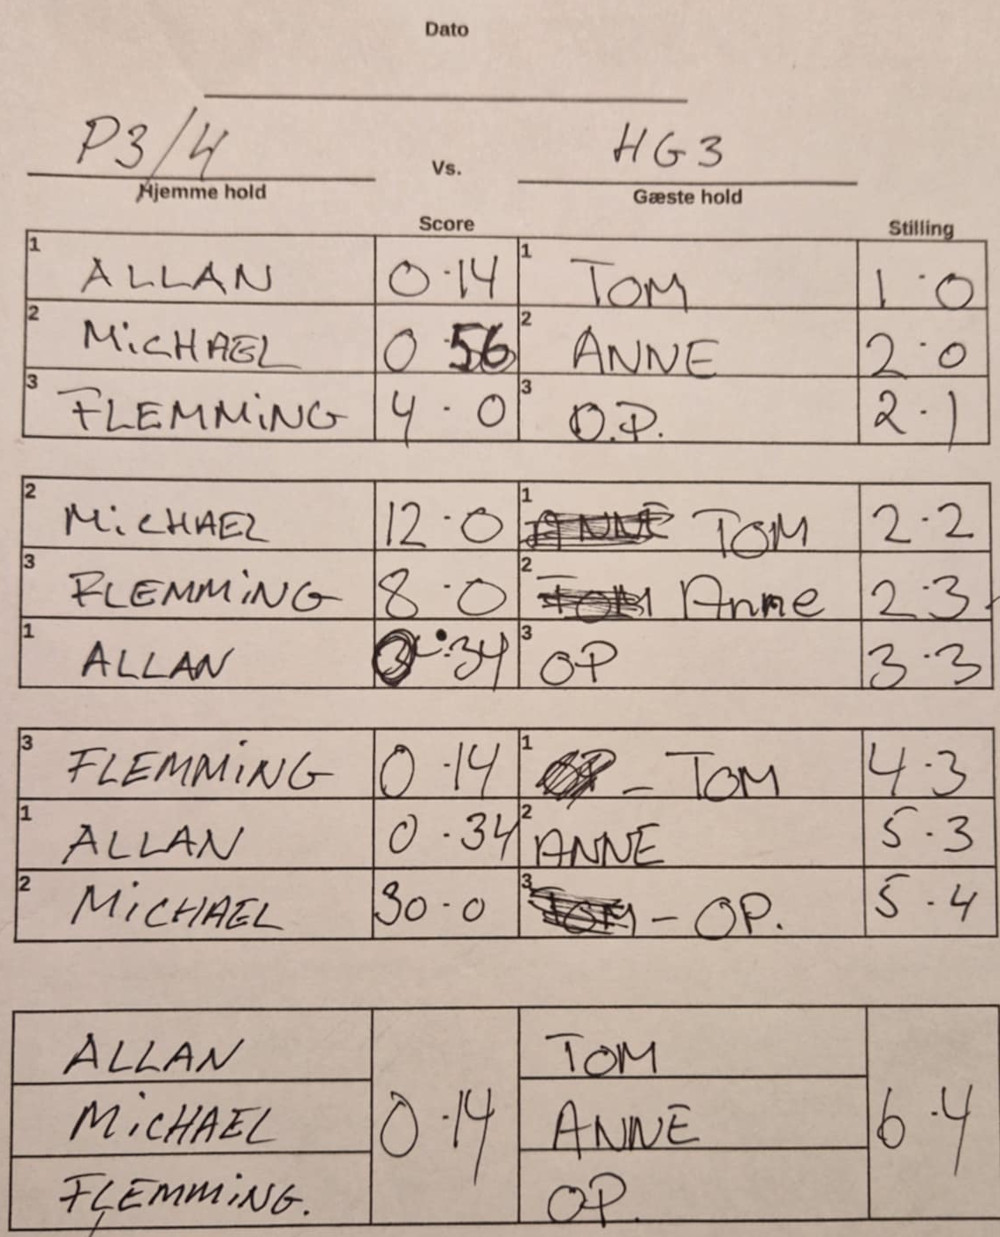 Dato
P3/4 Vs. HG3
Hjemme hold Gæste hold
Score Stilling
1 ALLAN 0·14 1 TOM 1·0
2 MiCHAEL 0·56 2 ANNE 2·0
3 FLEMMiNG 4·0 3 O.P. 2·1
2 MiCHAEL 12·0 1 ANNE TOM 2·2
3 FLEMMiNG 8·0 2 TOM Anne 2·3
1 ALLAN 0·34 3 OP 3·3
3 FLEMMiNG 0·14 1 OP - TOM 4·3
1 ALLAN 0·34 2 ANNE 5·3
2 MiCHAEL 30·0 3 TOM - OP. 5·4
ALLAN TOM
MiCHAEL 0·14 ANNE 6·4
FLEMMiNG. OP.